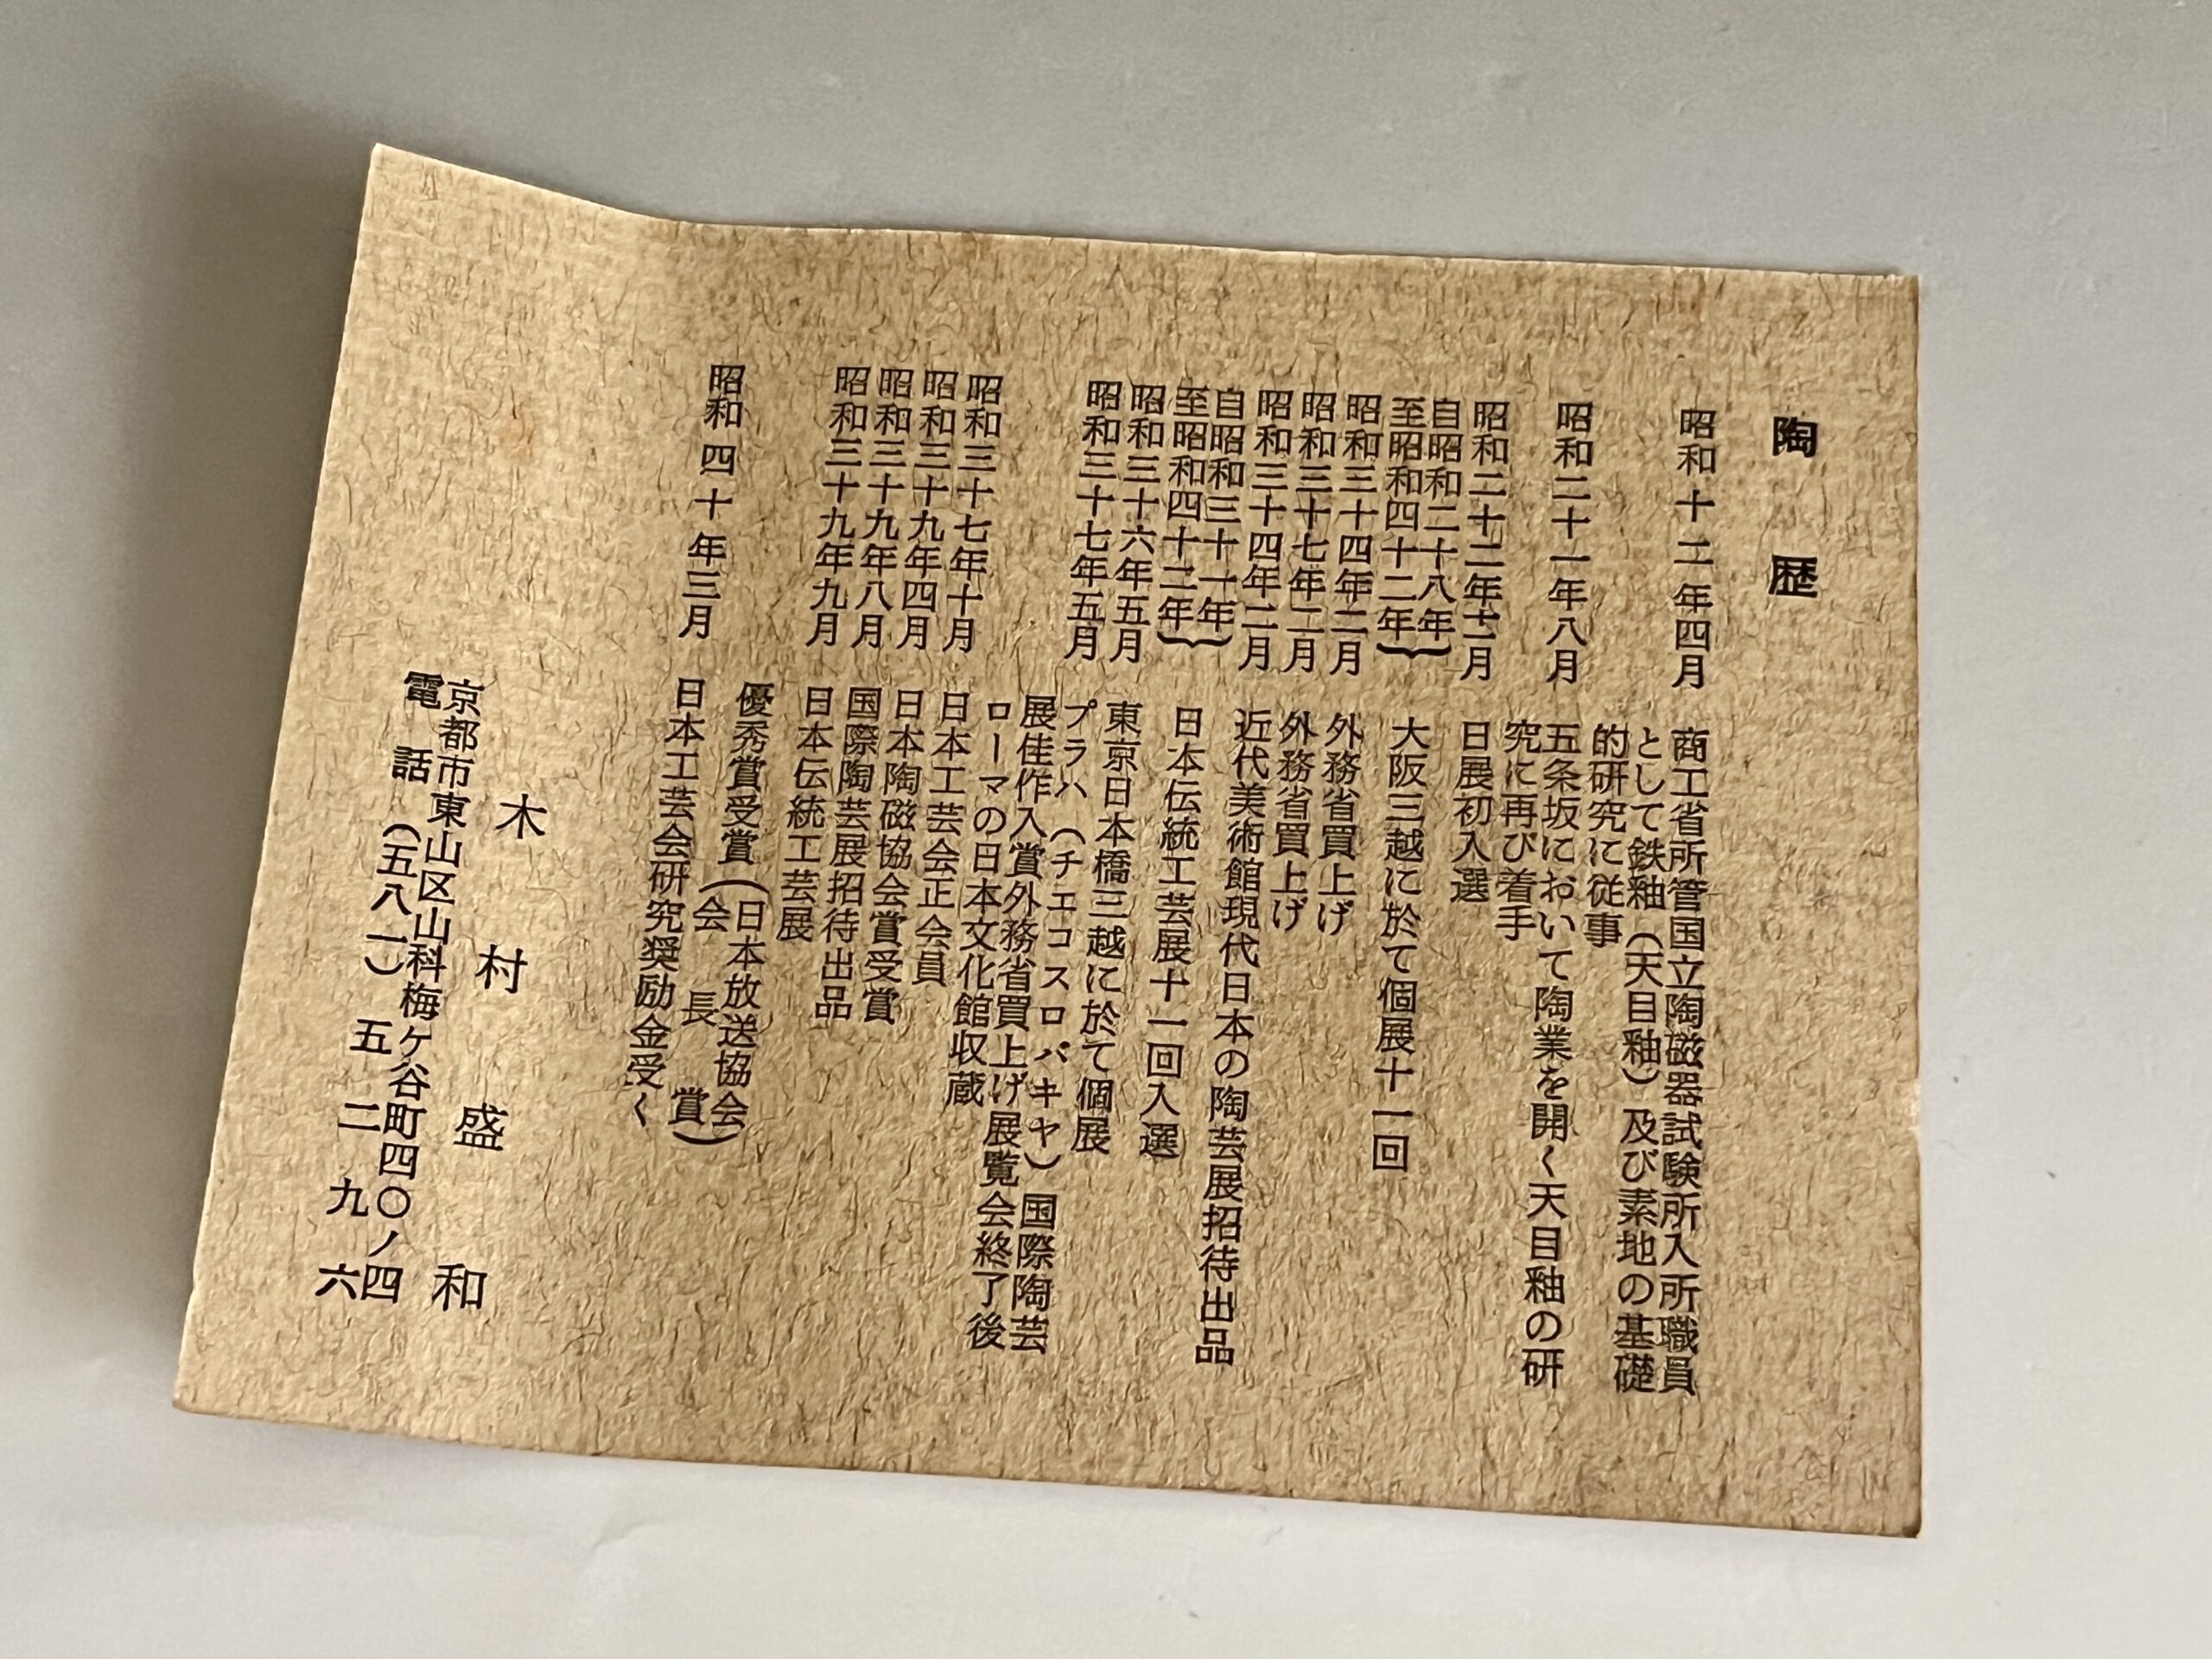 陶歴
昭和十二年四月
商工省所管国立陶磁器試験所入所職員
として鉄釉（天目釉）及び素地の基礎
的研究に従事
昭和二十一年八月
五条坂において陶業を開く天目釉の研
究に再び着手
昭和二十二年十一月
日展初入選
自昭和二十八年
至昭和四十二年
大阪三越に於て個展十一回
昭和三十四年二月
外務省買上げ
昭和三十七年二月
外務省買上げ
昭和三十四年二月
近代美術館現代日本の陶芸展招待出品
自昭和三十一年
至昭和四十二年
日本伝統工芸展十一回入選
昭和三十六年五月
東京日本橋三越に於て個展
昭和三十七年五月
プラハ（チエコスロバキヤ）国際陶芸
展佳作入賞外務省買上げ展覧会終了後
ローマの日本文化館収蔵
昭和三十七年十月
日本工芸会正会員
昭和三十九年四月
日本陶磁協会賞受賞
昭和三十九年八月
国際陶芸展招待出品
昭和三十九年九月
日本伝統工芸展
優秀賞受賞（日本放送協会
会長賞）
昭和四十年三月
日本工芸会研究奨励金受く
木村盛和
京都市東山区山科梅ケ谷町四〇ノ四
電話（五八一）五二九六